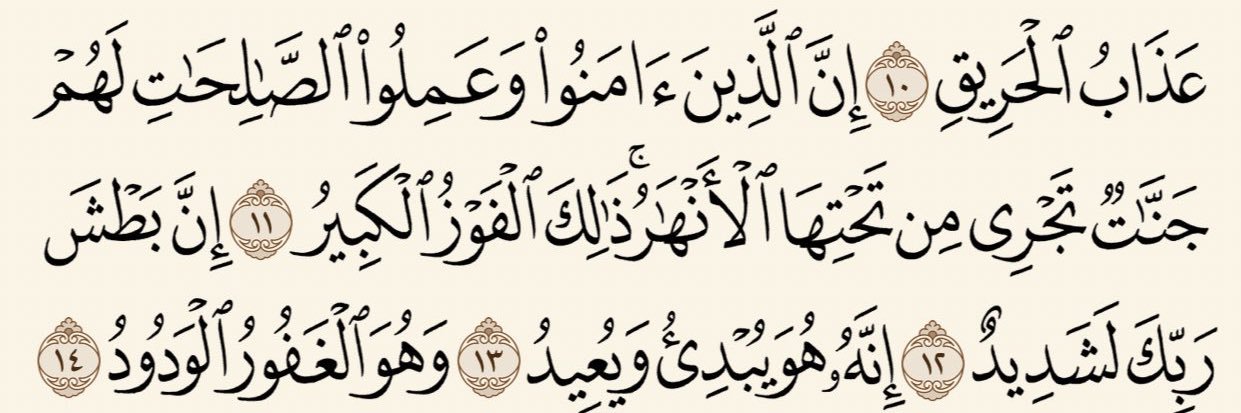 عَذَابُ ٱلْحَرِيقِ ١٠ إِنَّ ٱلَّذِينَ ءَامَنُوا۟ وَعَمِلُوا۟ ٱلصَّـٰلِحَـٰتِ لَهُمْ
جَنَّـٰتٌ تَجْرِى مِن تَحْتِهَا ٱلْأَنْهَـٰرُ ۚ ذَٰلِكَ ٱلْفَوْزُ ٱلْكَبِيرُ ١١ إِنَّ بَطْشَ
رَبِّكَ لَشَدِيدٌ ١٢ إِنَّهُۥ هُوَ يُبْدِئُ وَيُعِيدُ ١٣ وَهُوَ ٱلْغَفُورُ ٱلْوَدُودُ ١٤